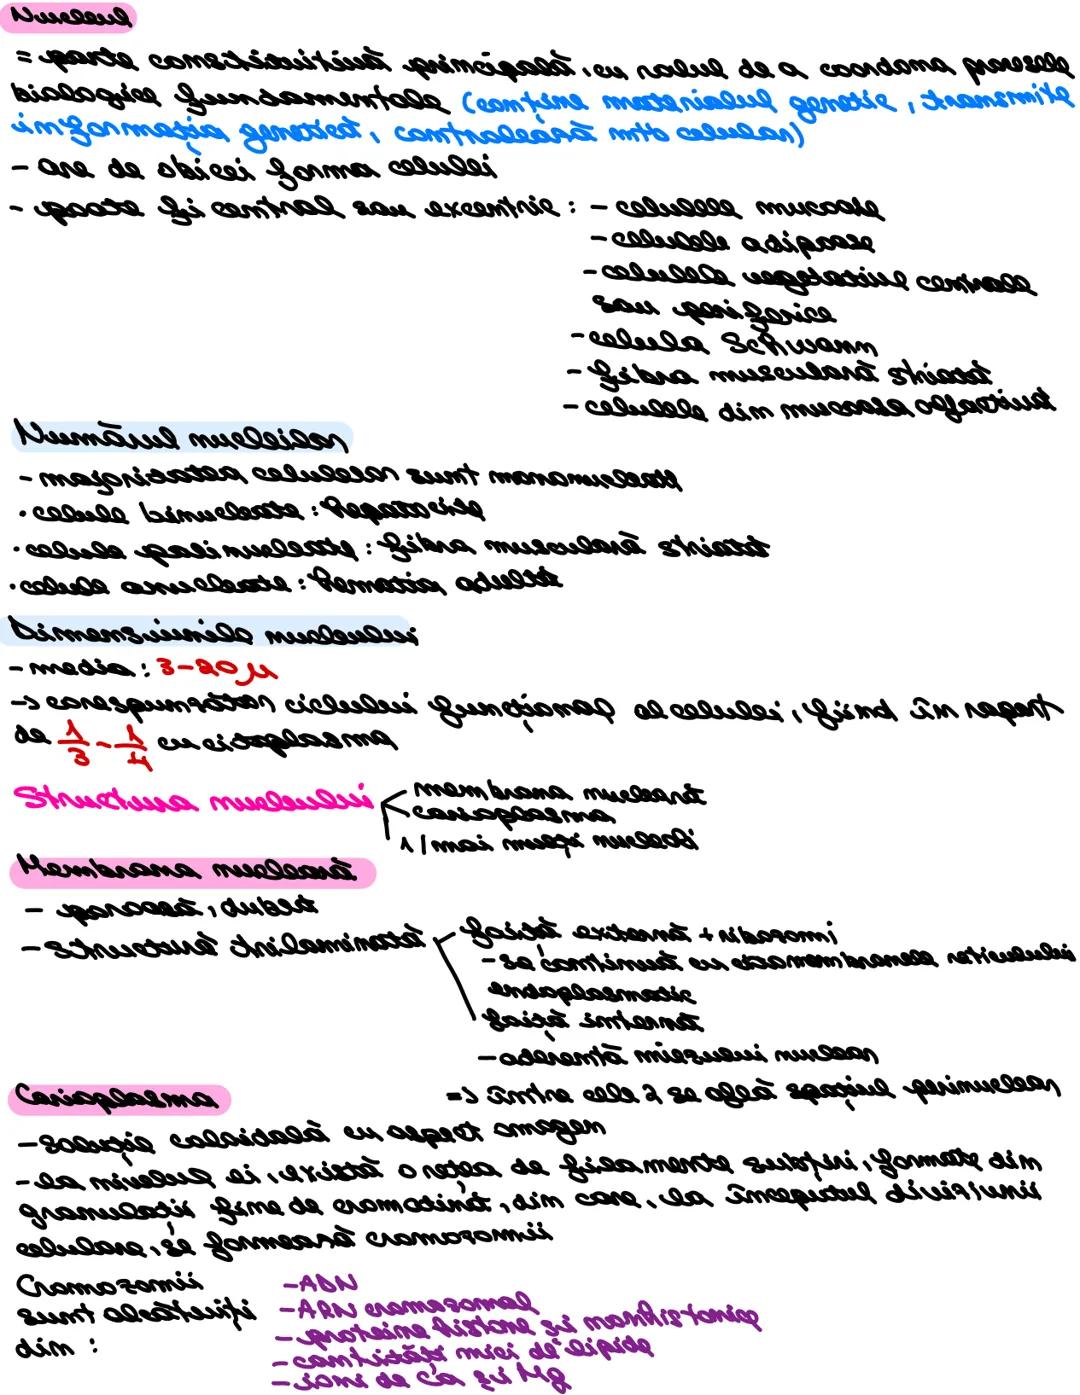 Nucleul
= parte constituitivă principală, cu rolul de a coordona procesele
biologice fundamentale (conține materialul genetic, transmite
informația genetică, controlează mtb celular)
- are de obicei forma celulei
- poate fi central sau excentric : - celulele mucoase
- celulele adipoase
- celulele vegetative centrale
sau periferice
- celula Schwann
- fibra musculară striată
- celulele din mucoasa olfactivă
Numărul nucleilor
- majoritatea celulelor sunt mononucleate
• celule binucleate : hepatocite
• celule polinucleate : fibra musculară striată
• celule anucleate : hematia adultă
Dimensiunile nucleului
- media : 3-20 µ
-> corespunzător ciclului funcțional al celulei, fiind în raport
de 1/3 - 1/4 cu citoplasma
Structura nucleului
membrana nucleară
carioplasma
1/mai mulți nucleoli
Membrana nucleară
- poroasă, dublă
- structură trilaminată
foiță externă + ribozomi
- se continuă cu citomembranele reticulului
endoplasmatic
foiță internă
- aderentă miezului nuclear
=> între cele 2 se află spațiul perinuclear
Carioplasma
- soluție coloidală cu aspect omogen
- la nivelul ei, există o rețea de filamente subțiri, formate din
granulații fine de cromatină, din care, la începutul diviziunii
celulare, se formează cromozomii
Cromozomii
sunt alcătuiți
din :
- ADN
- ARN cromozomal
- proteine histone și nonhistonice
- cantități mici de lipide
- ioni de Ca și Mg